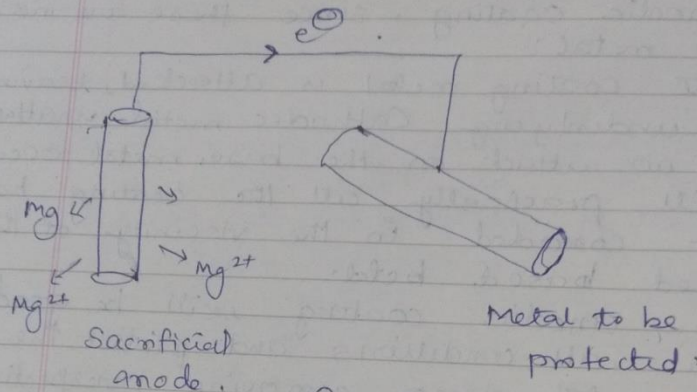 e⊖
Mg
Mg2+
Mg2+
Sacrificial
anode.
Metal to be
protected